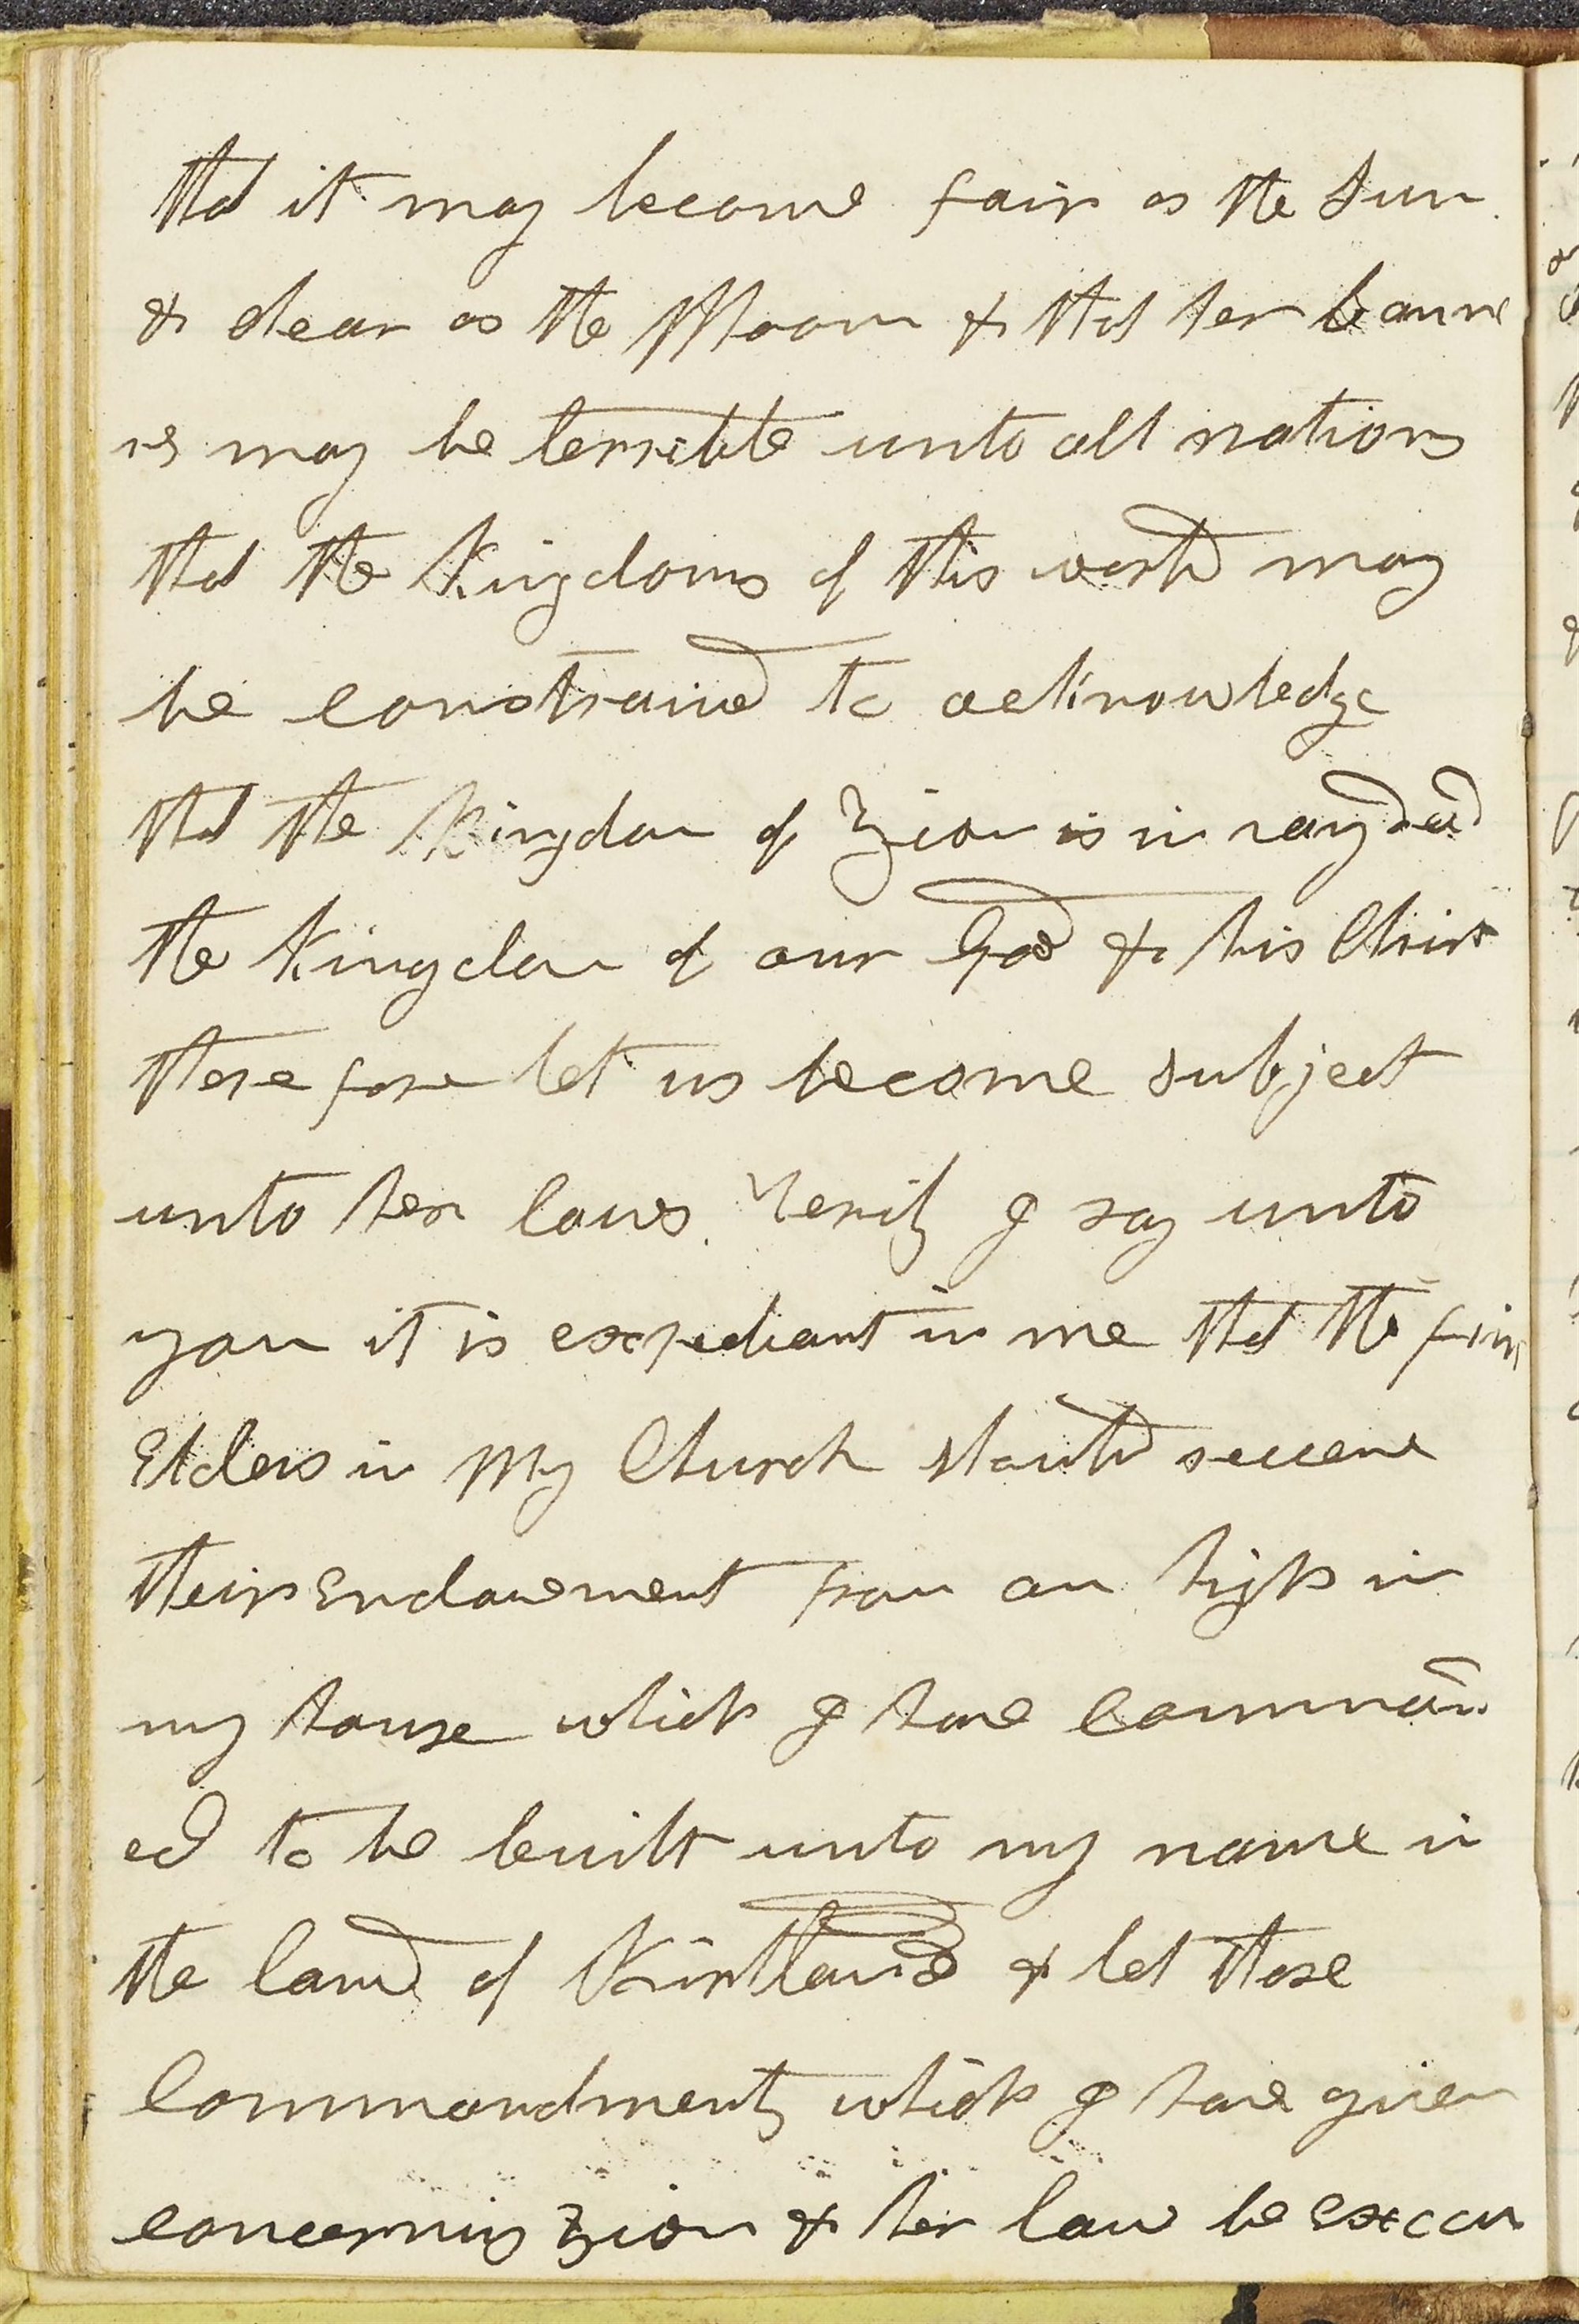 that it may become fair as the Sun
& clear as the Moon & that her banne
rs may be terrible unto all nations
that the Kingdoms of this world may
be constrained to acknowledge
that the Kingdom of Zion is in
the Kingdom of our God & his Christ
therefore let us become subject
unto her laws. Verily I say unto
you it is expediant in me that the first
Elders in My Church should receive
their Endowement from on high in
my house which I have comman
ed to be built unto my name in
the land of Kirtland & let those
Commandments which I have given
concerning Zion & her law be Excecu